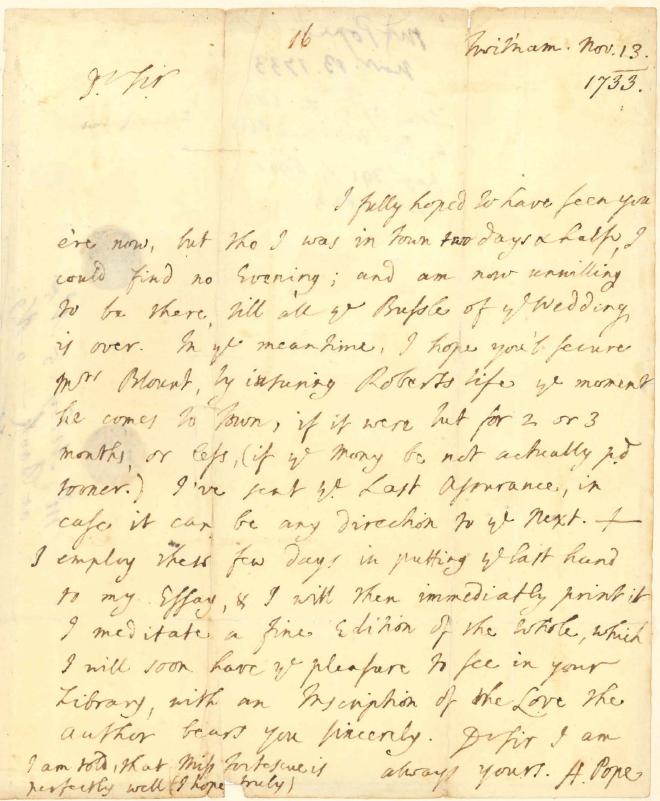 16
Twitnam. Nov. 13.
1733.
Dr Sir
I fully hoped to have seen you
e're now, but tho I was in town two days & half, I
could find no Evening; and am now unwilling
to be there, till all ye Bussle of ye Wedding
is over. In ye meantime, I hope you'l secure
Mrs Blount, by insuring Roberts life ye moment
he comes to Town, if it were but for 2 or 3
months, or less, (if ye Mony be not actually pd
to her.) I've sent ye Last Assurance, in
case it can be any direction to ye Next. +
I employ these few days in putting ye last hand
to my Essay, & I will then immediatly print it
I meditate a fine Edition of the whole, which
I will soon have ye pleasure to see in your
Library, with an Inscription of the Love the
author bears you sincerely. Dr Sir I am
always yours. A. Pope
I am told, that Miss Fortescue is
perfectly well (I hope truly)